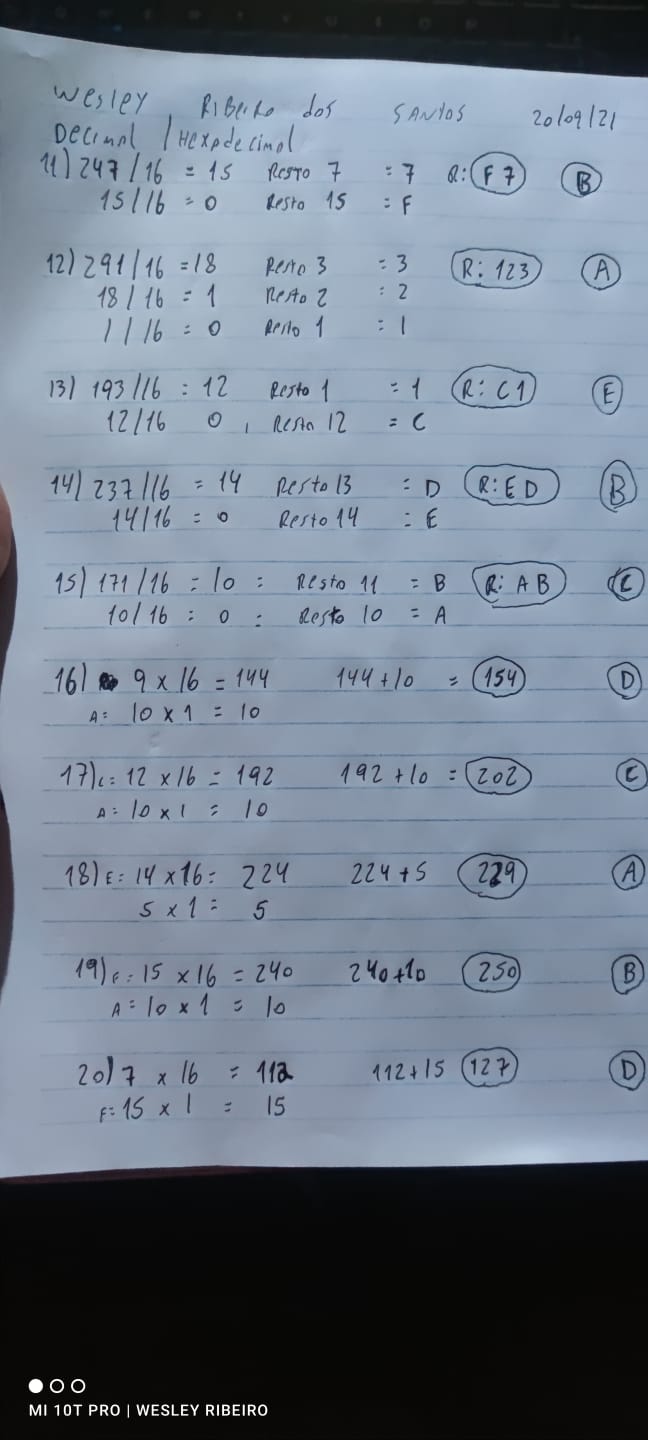 Wesley Ribeiro dos SANTOS 20/09/21
Decimal / Hexadecimal
11) 247/16 = 15 Resto 7 = 7 R: F7 B
15/16 = 0 Resto 15 = F
12) 291/16 = 18 Resto 3 = 3 R: 123 A
18/16 = 1 Resto 2 : 2
1/16 = 0 Resto 1 = 1
13) 193/16 : 12 Resto 1 = 1 R: C1 E
12/16 0, Resto 12 = C
14) 237/16 = 14 Resto 13 = D R: ED B
14/16 = 0 Resto 14 = E
15) 171/16 = 10 : Resto 11 = B R: AB C
10/16 : 0 : Resto 10 = A
16) 9 x 16 = 144 144+10 = 154 D
A= 10 x 1 = 10
17) C= 12 x 16 = 192 192+10 = 202 C
A= 10 x 1 = 10
18) E= 14 x 16= 224 224+5 229 A
5 x 1= 5
19) F= 15 x 16 = 240 240+10 250 B
A= 10 x 1 = 10
20) 7 x 16 = 112 112+15 127 D
F= 15 x 1 = 15
MI 10T PRO | WESLEY RIBEIRO